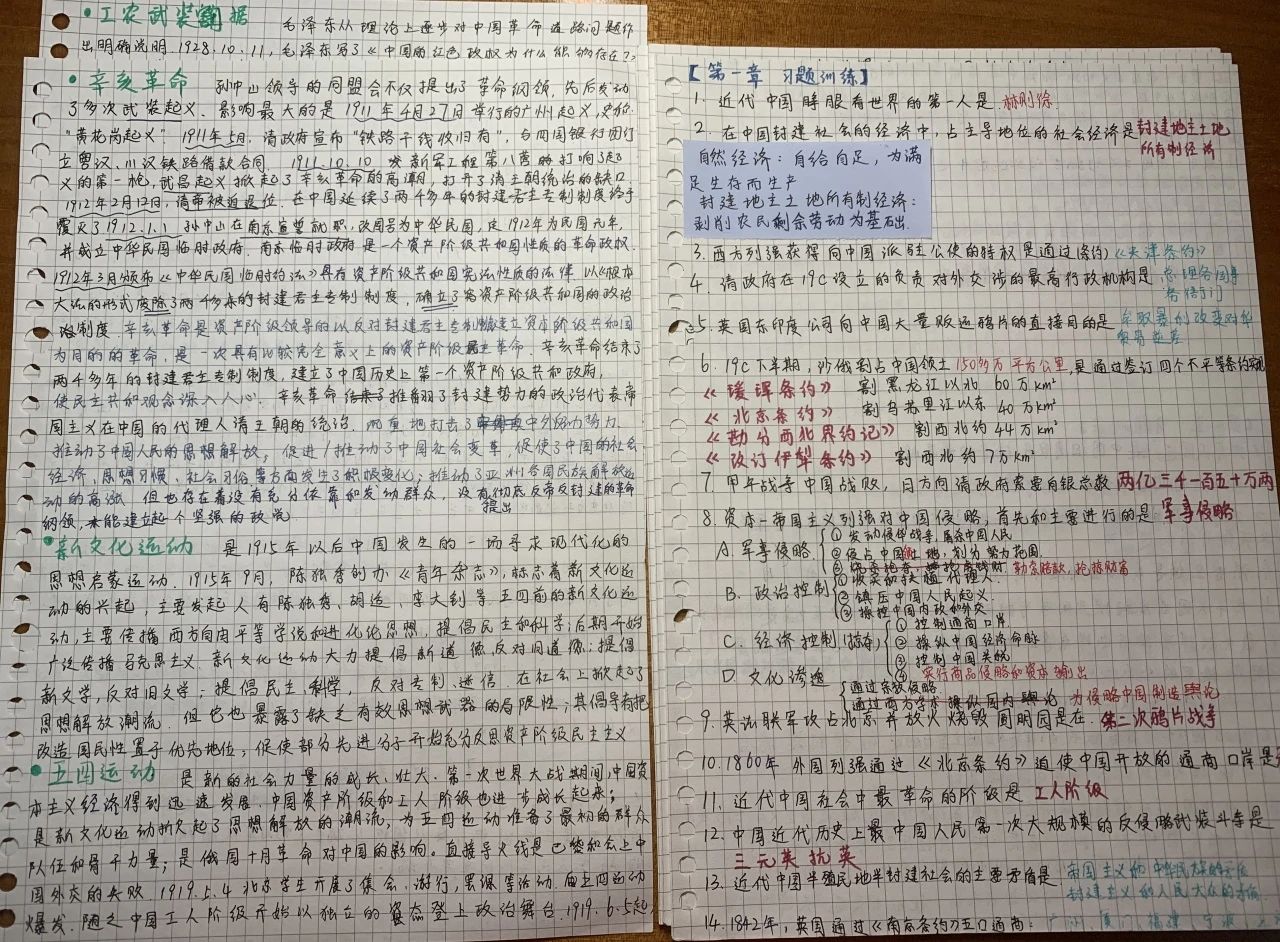 • 工农武装割据 毛泽东从理论上逐步对中国革命道路问题作
出明确说明. 1928.10.11, 毛泽东写了《中国的红色政权为什么能够存在?》
• 辛亥革命 孙中山领导的同盟会不仅提出了革命纲领, 先后发动
了多次武装起义. 影响最大的是 1911年4月27日举行的广州起义, 史称
"黄花岗起义". 1911年5月, 清政府宣布"铁路干线收归有", 与四国银行团订
立粤汉、川汉铁路借款合同. 1911.10.10 新军工程第八营 打响了起
义的第一枪, 武昌起义掀起了辛亥革命的高潮, 打开了清王朝统治的缺口
1912年2月12日, 清帝被迫退位. 在中国延续了两千多年的封建君主专制制度终于
覆灭了 1912.1.1 孙中山在南京宣誓就职, 改国号为中华民国, 定1912年为民国元年,
并成立中华民国临时政府. 南京临时政府是一个资产阶级共和国性质的革命政权.
1912年3月颁布《中华民国临时约法》具有资产阶级共和国宪法性质的法律. 以《根本
大法的形式废除了两千多来的封建君主专制制度, 确立了 资产阶级共和国的政治
制度 辛亥革命是资产阶级领导的以反对封建君主专制 建立资产阶级共和国
为目的的革命, 是一次具有比较完全意义上的资产阶级民主革命. 辛亥革命结束了
两千多年的封建君主专制制度, 建立了中国历史上第一个资产阶级共和政府,
使民主共和观念深入人心. 辛亥革命 推翻了封建势力的政治代表帝
国主义在中国的代理人清王朝的统治. 沉重地打击了 中外反动势力.
推动了中国人民的思想解放, 促进/推动了中国社会变革, 促使了中国的社会
经济、思想习惯、社会习俗等方面发生了积极变化; 推动了亚洲各国民族解放运
动的高涨 但也存在着没有充分依靠和发动群众, 没有彻底反帝反封建的革命
提出
纲领, 未能建立起个坚强的政党
• 新文化运动 是1915年以后中国发生的一场寻求现代化的
思想启蒙运动. 1915年9月, 陈独秀创办《青年杂志》, 标志着新文化运
动的兴起, 主要发起人有陈独秀、胡适、李大钊等. 五四前的新文化运
动, 主要传播西方自由平等学说和进化论思想, 提倡民主和科学; 后期开始
广泛传播马克思主义. 新文化运动大力提倡新道德, 反对旧道德; 提倡
新文学, 反对旧文学; 提倡民主、科学, 反对专制、迷信. 在社会上掀起了
思想解放潮流. 但它也暴露了缺乏有效思想武器的局限性; 其倡导者把
改造国民性置于优先地位, 促使部分先进分子开始充分反思资产阶级民主主义
• 五四运动 是新的社会力量的成长、壮大. 第一次世界大战期间, 中国资
本主义经济得到迅速发展, 中国资产阶级和工人阶级也进步成长起来;
是新文化运动掀起了思想解放的潮流, 为五四运动准备了最初的群众
队伍和骨干力量; 是俄国十月革命对中国的影响。直接导火线是巴黎和会上中
国外交的失败. 1919.5.4 北京学生开展了集会、游行, 罢课等活动. 五四运动
爆发. 随之中国工人阶级开始以独立的姿态登上政治舞台. 1919.6.5起
【第一章 习题训练】
1. 近代中国睁眼看世界的第一人是 林则徐
2. 在中国封建社会的经济中, 占主导地位的社会经济是 封建地主土地
所有制经济
自然经济: 自给自足, 为满
足生存而生产
封建地主土地所有制经济:
剥削农民剩余劳动为基础.
3. 西方列强获得向中国派驻公使的特权是通过(条约)《天津条约》
4. 请政府在19C设立的负责对外交涉的最高行政机构是 总理各国事
务衙门
5. 英国东印度公司向中国大量贩运鸦片的直接目的是
6. 19C下半期, 沙俄割占中国领土 150多万平方公里, 是通过签订四个不平等条约实现
《瑷珲条约》 割黑龙江以北 60万km²
《北京条约》 割乌苏里江以东 40万km²
《勘分西北界约记》 割西北约44万km²
《改订伊犁条约》 割西北约7万km²
7. 甲午战争中国战败, 日方向清政府索要白银总数 两亿三千一百五十万两
8. 资本-帝国主义列强对中国侵略, 首先和主要进行的是 军事侵略
A. 军事侵略 ① 发动侵华战争, 屠杀中国人民
② 侵占中国领土, 划分势力范围.
③ 勒索赔款, 抢掠财富
B. 政治控制 ① 收买和扶植代理人.
② 镇压中国人民起义.
③ 操控中国内政和外交
C. 经济控制(掠夺) ① 控制通商口岸.
② 操纵中国经济命脉
③ 控制中国关税
④ 实行商品侵略和资本输出
D. 文化渗透 通过宗教侵略
通过西方学术 操纵国内舆论, 为侵略中国制造舆论
9. 英法联军攻占北京并放火烧毁圆明园是在. 第二次鸦片战争
10. 1860年外国列强通过《北京条约》迫使中国开放的通商口岸是
11. 近代中国社会中最革命的阶级是 工人阶级
12. 中国近代历史上最中国人民第一次大规模的反侵略武装斗争是
三元里抗英
13. 近代中国半殖民地半封建社会的主要矛盾是 帝国主义和中华民族的矛盾
封建主义和人民大众的矛盾
14. 1842年, 英国通过《南京条约》五口通商: 广州、厦门、福建、宁波、